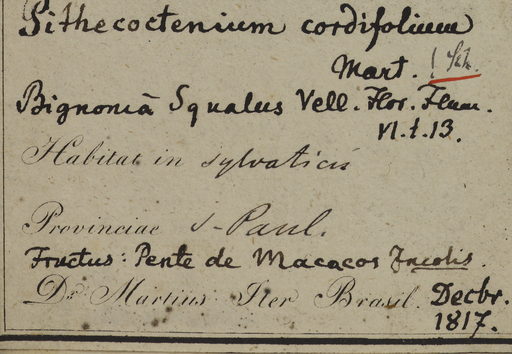 Pithecoctenium cordifolium
Mart. !
Bignonia Squalus Vell. Flor. Flum.
VI. t. 13.
Habitat in sylvaticis
Provinciae S. Paul.
Fructus: Pente de Macacos Incolis.
Dr. Martius Iter Brasil. Decbr.
1817.